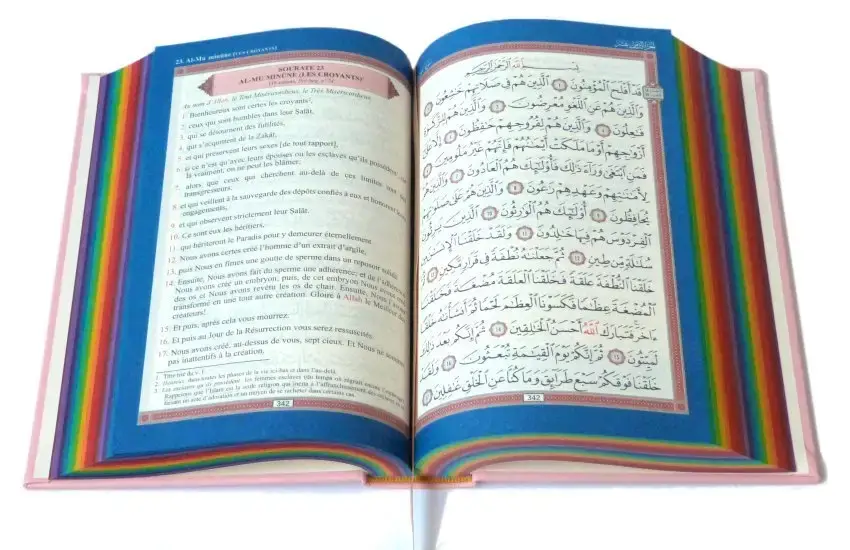 23. Al-Mu'minûne (LES CROYANTS)
SOURATE 23
AL-MU'MINÛNE (LES CROYANTS)
Au nom d'Allah, le Tout Miséricordieux, le Très Miséricordieux.
1. Bienheureux sont certes les croyants¹,
2. ceux qui sont humbles dans leur Salât,
3. qui se détournent des futilités,
4. qui s'acquittent de la Zakât,
5. et qui préservent leurs sexes [de tout rapport],
6. si ce n'est qu'avec leurs épouses ou les esclaves qu'ils possèdent,
là vraiment, on ne peut les blâmer;
7. alors que ceux qui cherchent au-delà de ces limites sont des
transgresseurs;
8. et qui veillent à la sauvegarde des dépôts confiés à eux et honorent leurs
engagements,
9. et qui observent strictement leur Salât.
10. Ce sont eux les héritiers,
11. qui hériteront le Paradis pour y demeurer éternellement.
12. Nous avons certes créé l'homme d'un extrait d'argile,
13. puis Nous en fîmes une goutte de sperme dans un reposoir solide.
14. Ensuite, Nous avons fait du sperme une adhérence; et de l'adhérence
Nous avons créé un embryon; puis, de cet embryon Nous avons créé
des os et Nous avons revêtu les os de chair. Ensuite, Nous l'avons
transformé en une tout autre création. Gloire à Allah le Meilleur des
créateurs!
15. Et puis, après cela vous mourrez.
16. Et puis au Jour de la Résurrection vous serez ressuscités.
17. Nous avons créé, au-dessus de vous, sept cieux. Et Nous ne sommes
pas inattentifs à la création.
1 Titre tiré du v. 1.
342
بِسْمِ اللَّهِ الرَّحْمَٰنِ الرَّحِيمِ
قَدْ أَفْلَحَ الْمُؤْمِنُونَ ١ الَّذِينَ هُمْ فِي صَلَاتِهِمْ خَاشِعُونَ ٢
وَالَّذِينَ هُمْ عَنِ اللَّغْوِ مُعْرِضُونَ ٣ وَالَّذِينَ هُمْ لِلزَّكَاةِ
فَاعِلُونَ ٤ وَالَّذِينَ هُمْ لِفُرُوجِهِمْ حَافِظُونَ ٥ إِلَّا عَلَىٰ
أَزْوَاجِهِمْ أَوْ مَا مَلَكَتْ أَيْمَانُهُمْ فَإِنَّهُمْ غَيْرُ مَلُومِينَ ٦
فَمَنِ ابْتَغَىٰ وَرَاءَ ذَٰلِكَ فَأُولَٰئِكَ هُمُ الْعَادُونَ ٧ وَالَّذِينَ هُمْ
لِأَمَانَاتِهِمْ وَعَهْدِهِمْ رَاعُونَ ٨ وَالَّذِينَ هُمْ عَلَىٰ صَلَوَاتِهِمْ
يُحَافِظُونَ ٩ أُولَٰئِكَ هُمُ الْوَارِثُونَ ١٠ الَّذِينَ يَرِثُونَ
الْفِرْدَوْسَ هُمْ فِيهَا خَالِدُونَ ١١ وَلَقَدْ خَلَقْنَا الْإِنْسَانَ مِنْ
سُلَالَةٍ مِنْ طِينٍ ١٢ ثُمَّ جَعَلْنَاهُ نُطْفَةً فِي قَرَارٍ مَكِينٍ ١٣ ثُمَّ
خَلَقْنَا النُّطْفَةَ عَلَقَةً فَخَلَقْنَا الْعَلَقَةَ مُضْغَةً فَخَلَقْنَا
الْمُضْغَةَ عِظَامًا فَكَسَوْنَا الْعِظَامَ لَحْمًا ثُمَّ أَنْشَأْنَاهُ خَلْقًا
آخَرَ فَتَبَارَكَ اللَّهُ أَحْسَنُ الْخَالِقِينَ ١٤ ثُمَّ إِنَّكُمْ بَعْدَ ذَٰلِكَ
لَمَيِّتُونَ ١٥ ثُمَّ إِنَّكُمْ يَوْمَ الْقِيَامَةِ تُبْعَثُونَ ١٦ وَلَقَدْ
خَلَقْنَا فَوْقَكُمْ سَبْعَ طَرَائِقَ وَمَا كُنَّا عَنِ الْخَلْقِ غَافِلِينَ ١٧
342